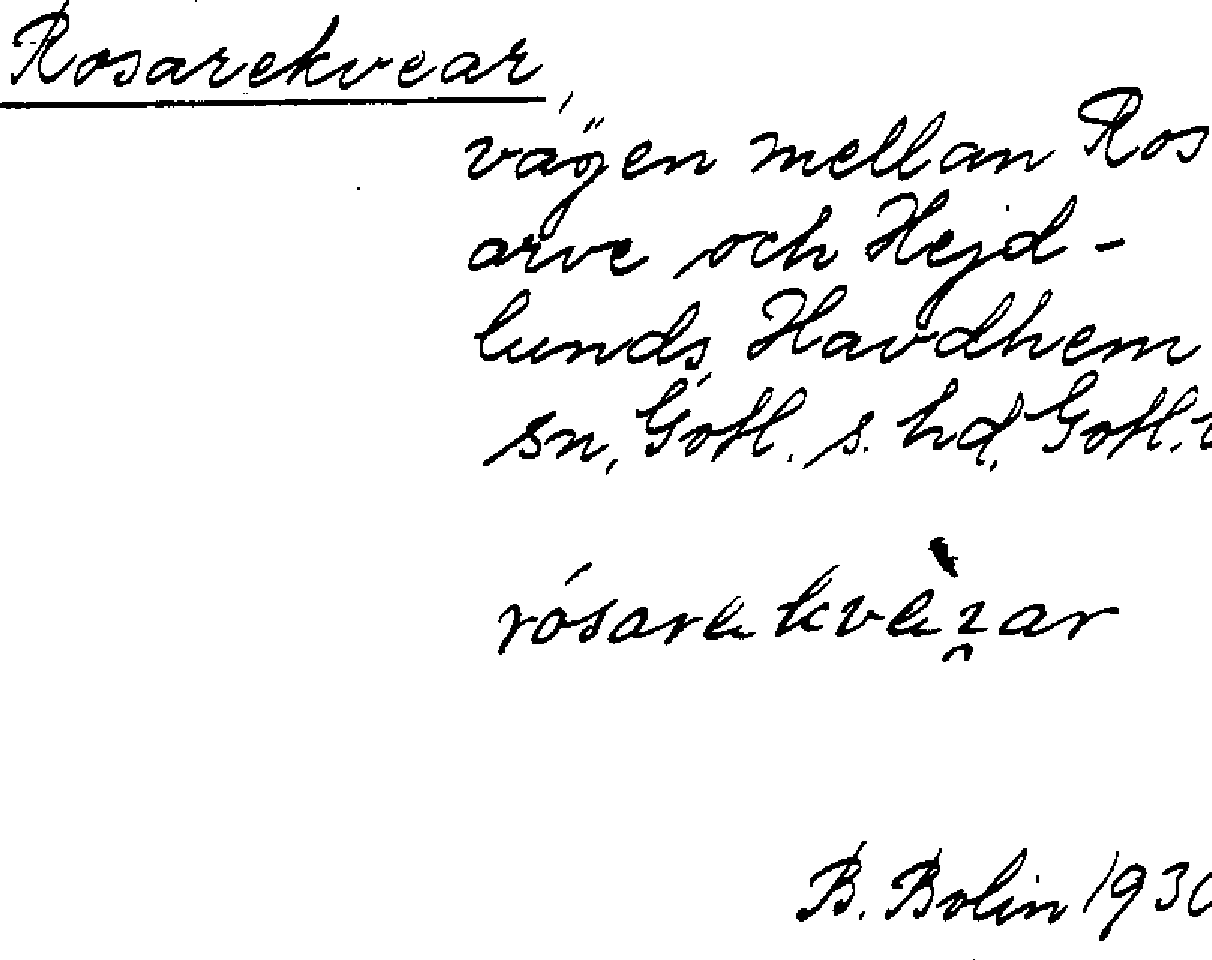 Rosarekvear,
vägen mellan Ros
arve och Hejd-
lunds, Havdhem
sn, Gotl. s. hd, Gotl.
rósarekvè̯ar
B. Bolin 193